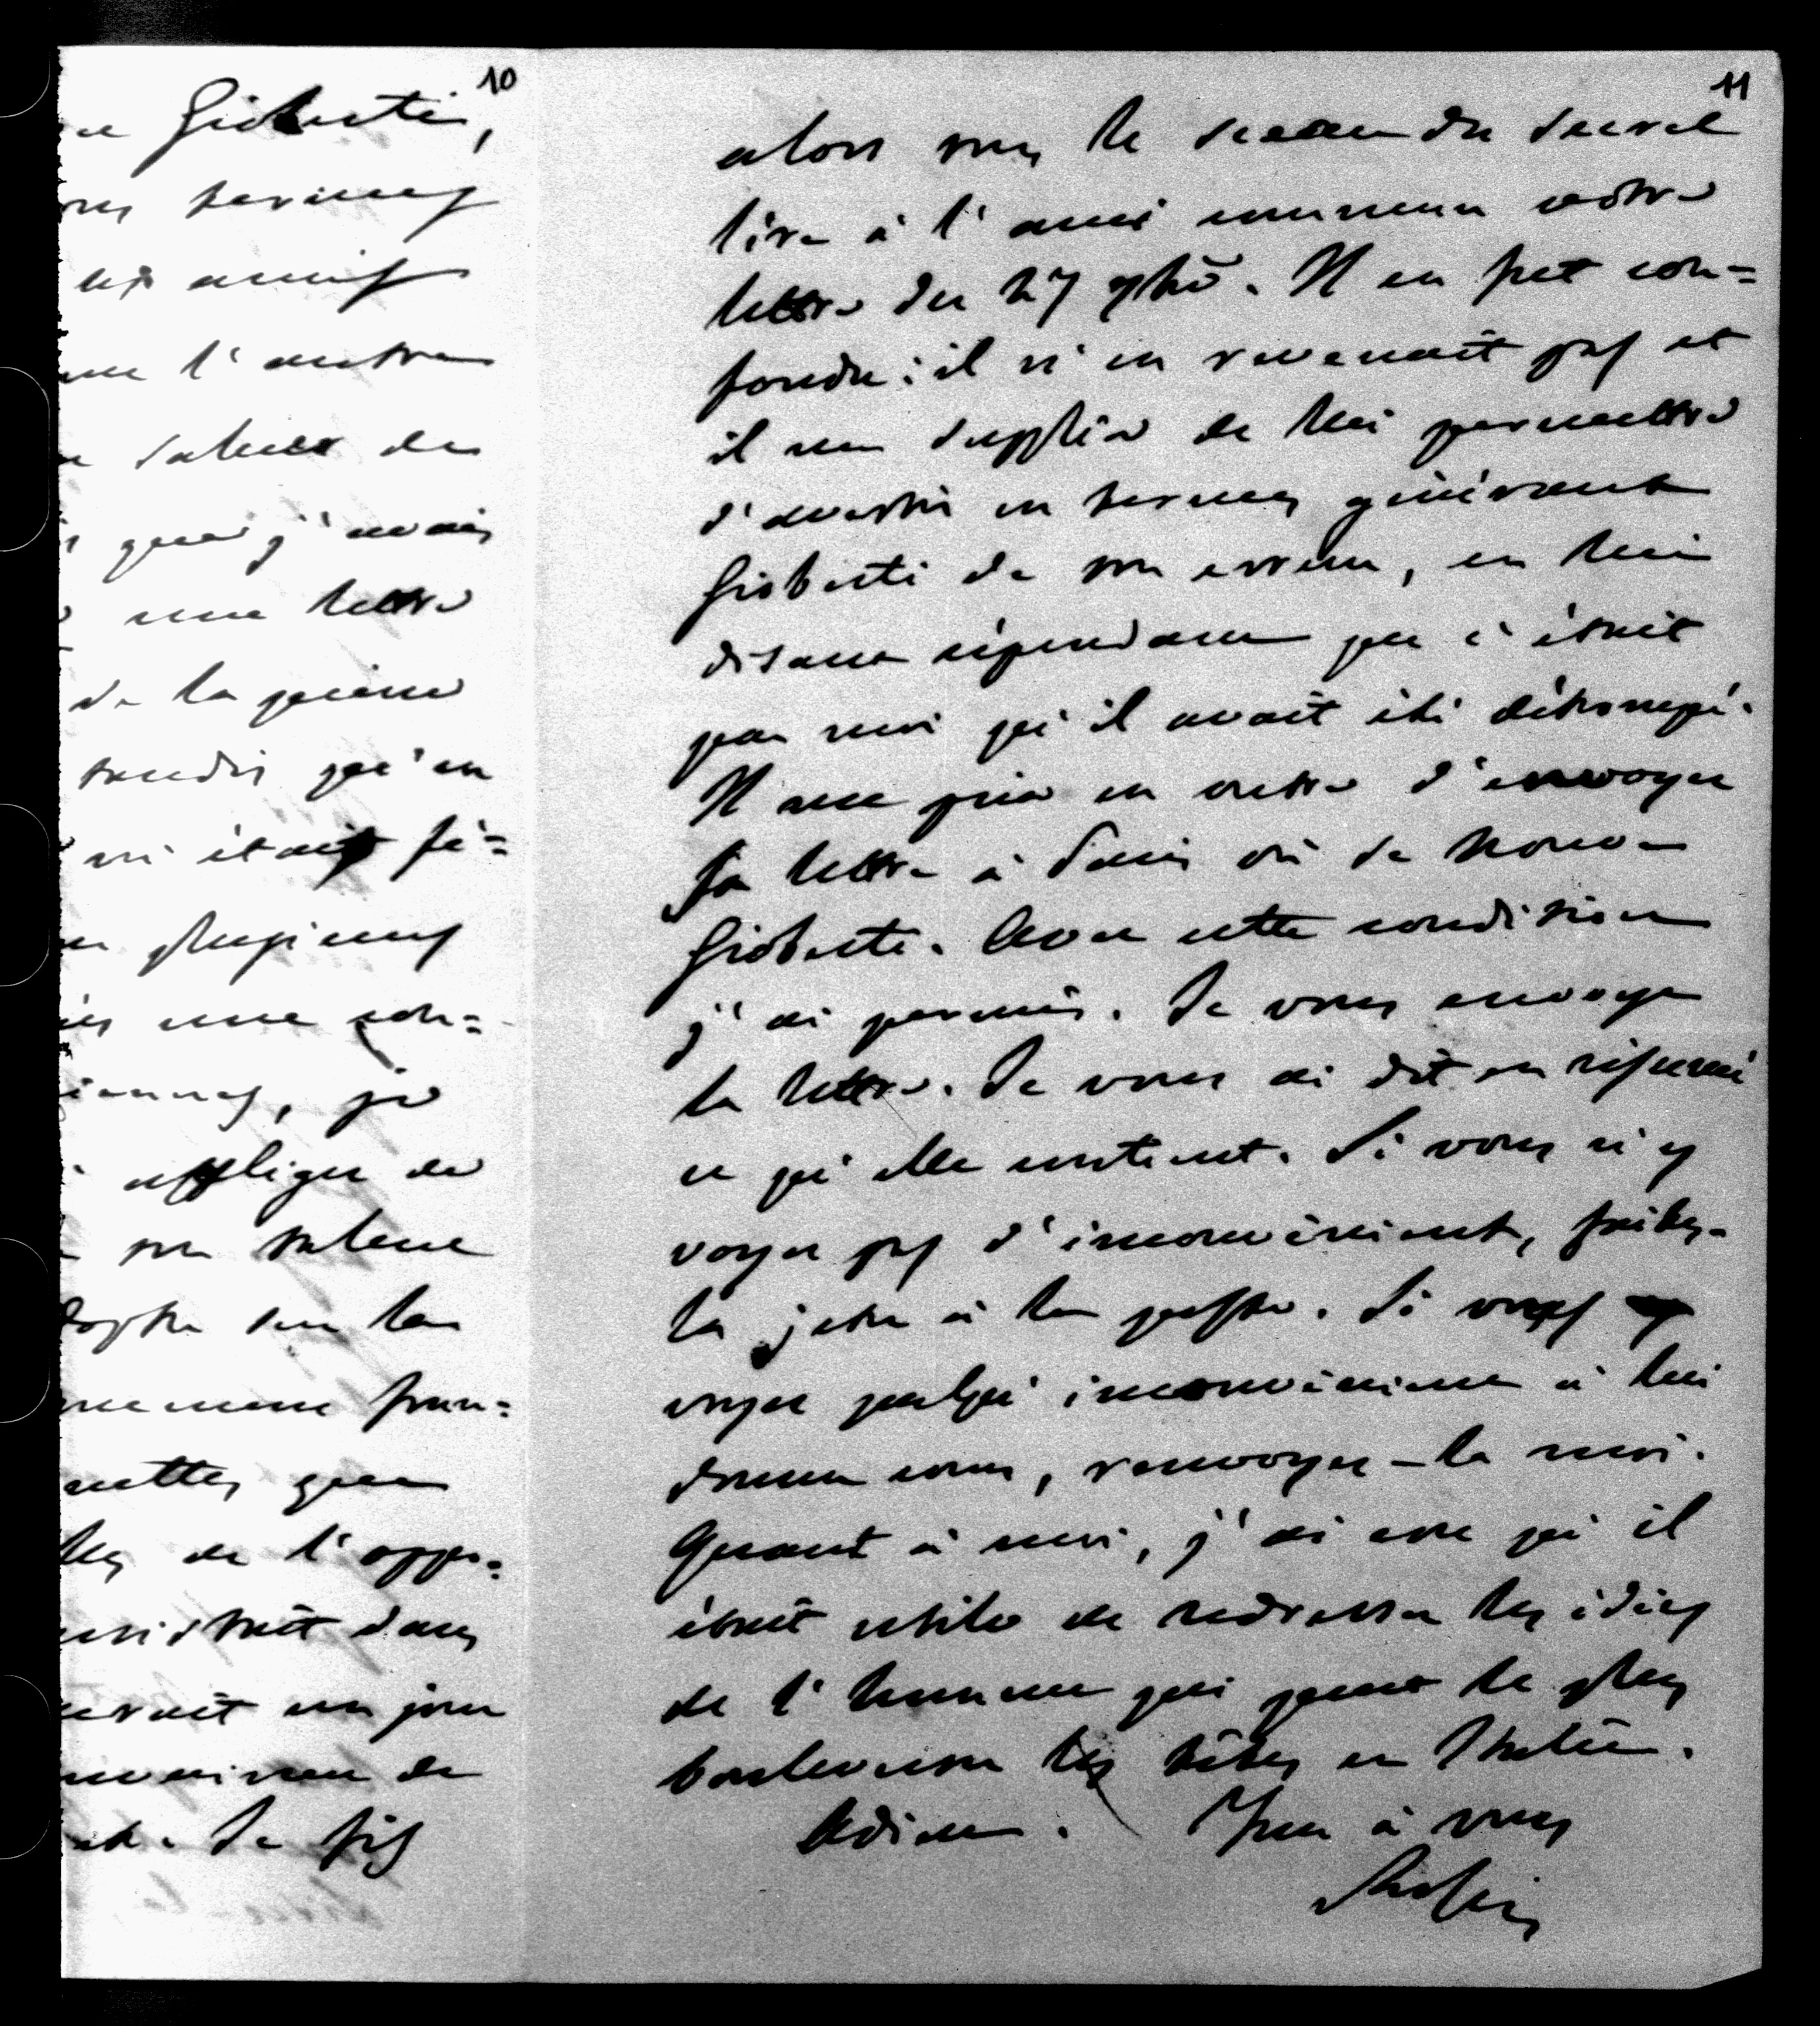 10
Gioberti,
termes
les amis
l'autre
talent de
que j'avais
une lettre
de la peine
tandis qu'en
était fâ=
plusieurs
une con=
je
affliger de
son talent
sur la
fran=
mettez que
de l'oppo=
dans
un jour
de
Je fis
11
alors sous le sceau du secret
lire à l'ami commun votre
lettre du 27 9bre. Il en fut con=
fondu: il n'en revenait pas et
il me supplia de lui permettre
d'avertir en termes généraux
Gioberti de son erreur, en lui
disant cependant que c'était
par moi qu'il avait été détrompé.
Il me pria en outre d'envoyer
sa lettre à Paris où se trouve
Gioberti. Avec cette condition
j'ai permis. Je vous envoye
la lettre. Je vous ai dit en résumé
ce qu'elle contient. Si vous n'y
voyez pas d'inconvénient, faites-
la jeter à la poste. Si vous
voyez quelque inconvénient à lui
donner cours, renvoyez-la moi.
Quant à moi, j'ai cru qu'il
était utile de redresser les idées
de l'homme qui peut le plus
bouleverser les têtes en Italie.
Adieu. Tout à vous
Rossi